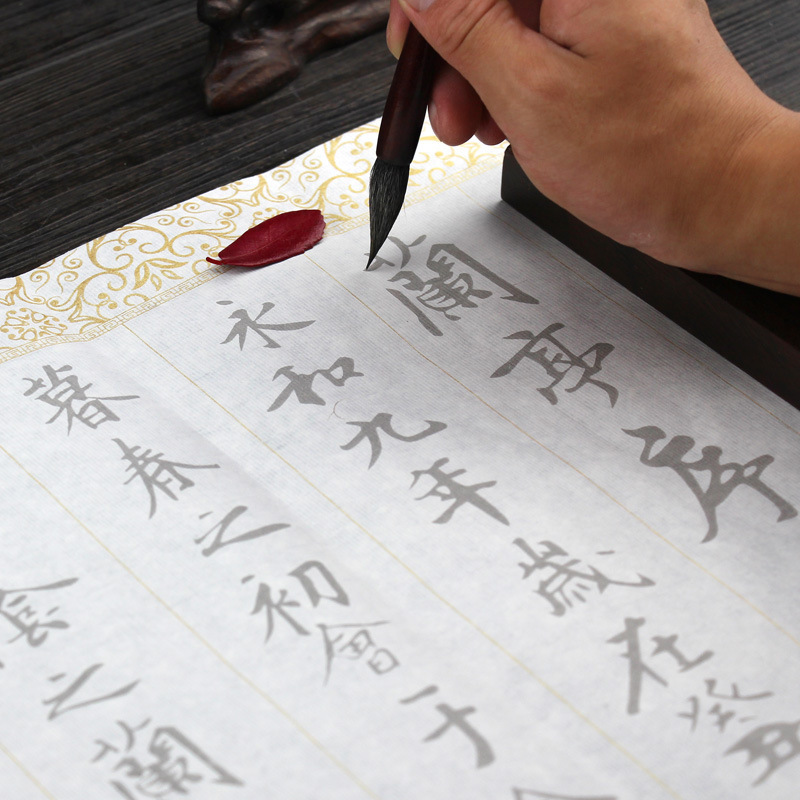 蘭亭序
永和九年歲在癸丑
暮春之初會于
陰之蘭